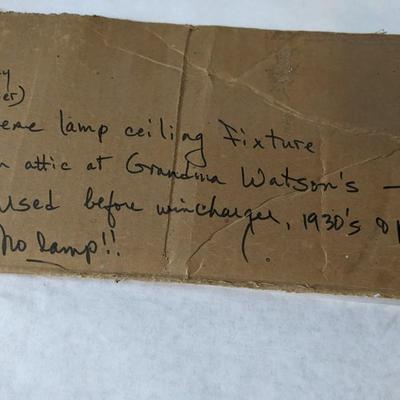 y
er)
ene lamp ceiling Fixture
n attic at Grandma Watson's —
used before wincharger, 1930's o
No Lamp!!